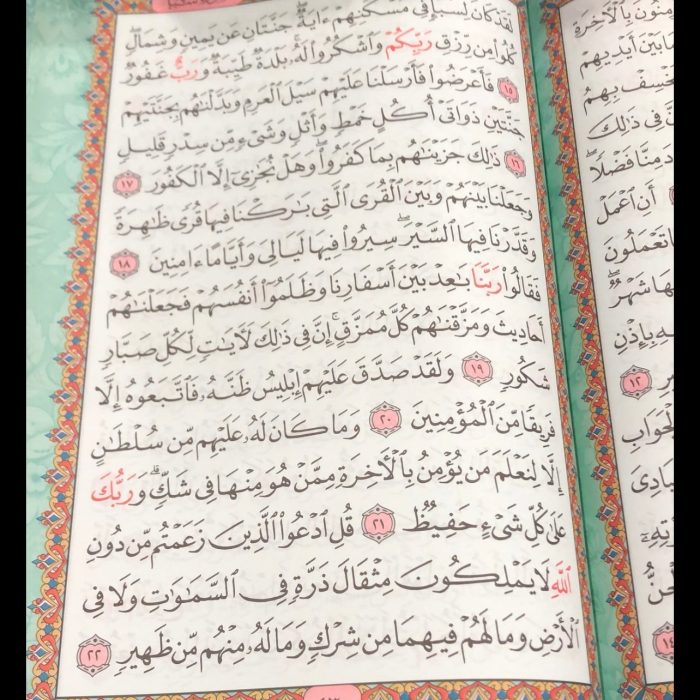 لَقَدْ كَانَ لِسَبَإٍ فِي مَسْكَنِهِمْ ءَايَةٌ ۖ جَنَّتَانِ عَن يَمِينٍ وَشِمَالٍ ۖ
كُلُوا۟ مِن رِّزْقِ رَبِّكُمْ وَٱشْكُرُوا۟ لَهُۥ ۚ بَلْدَةٌ طَيِّبَةٌ وَرَبٌّ غَفُورٌ
١٥ فَأَعْرَضُوا۟ فَأَرْسَلْنَا عَلَيْهِمْ سَيْلَ ٱلْعَرِمِ وَبَدَّلْنَٰهُم بِجَنَّتَيْهِمْ
جَنَّتَيْنِ ذَوَاتَىْ أُكُلٍ خَمْطٍ وَأَثْلٍ وَشَىْءٍ مِّن سِدْرٍ قَلِيلٍ
١٦ ذَٰلِكَ جَزَيْنَٰهُم بِمَا كَفَرُوا۟ ۖ وَهَلْ نُجَٰزِىٓ إِلَّا ٱلْكَفُورَ ١٧
وَجَعَلْنَا بَيْنَهُمْ وَبَيْنَ ٱلْقُرَى ٱلَّتِى بَٰرَكْنَا فِيهَا قُرًى ظَٰهِرَةً
وَقَدَّرْنَا فِيهَا ٱلسَّيْرَ ۖ سِيرُوا۟ فِيهَا لَيَالِىَ وَأَيَّامًا ءَامِنِينَ ١٨
فَقَالُوا۟ رَبَّنَا بَٰعِدْ بَيْنَ أَسْفَارِنَا وَظَلَمُوٓا۟ أَنفُسَهُمْ فَجَعَلْنَٰهُمْ
أَحَادِيثَ وَمَزَّقْنَٰهُمْ كُلَّ مُمَزَّقٍ ۚ إِنَّ فِى ذَٰلِكَ لَءَايَٰتٍ لِّكُلِّ صَبَّارٍ
شَكُورٍ ١٩ وَلَقَدْ صَدَّقَ عَلَيْهِمْ إِبْلِيسُ ظَنَّهُۥ فَٱتَّبَعُوهُ إِلَّا
فَرِيقًا مِّنَ ٱلْمُؤْمِنِينَ ٢٠ وَمَا كَانَ لَهُۥ عَلَيْهِم مِّن سُلْطَٰنٍ
إِلَّا لِنَعْلَمَ مَن يُؤْمِنُ بِٱلْءَاخِرَةِ مِمَّنْ هُوَ مِنْهَا فِى شَكٍّ ۗ وَرَبُّكَ
عَلَىٰ كُلِّ شَىْءٍ حَفِيظٌ ٢١ قُلِ ٱدْعُوا۟ ٱلَّذِينَ زَعَمْتُم مِّن دُونِ
ٱللَّهِ ۖ لَا يَمْلِكُونَ مِثْقَالَ ذَرَّةٍ فِى ٱلسَّمَٰوَٰتِ وَلَا فِى
ٱلْأَرْضِ وَمَا لَهُمْ فِيهِمَا مِن شِرْكٍ وَمَا لَهُۥ مِنْهُم مِّن ظَهِيرٍ ٢٢
بِٱلْءَاخِرَةِ
بَيْنَ أَيْدِيهِمْ
بِهِمُ
فِى ذَٰلِكَ
مِنَّا فَضْلًا ۖ
أَنِ ٱعْمَلْ
تَعْمَلُونَ
شَهْرٌ ۖ
بِإِذْنِ
١٢
كَٱلْجَوَابِ
عِبَادِىَ
ٱلْجِنُّ